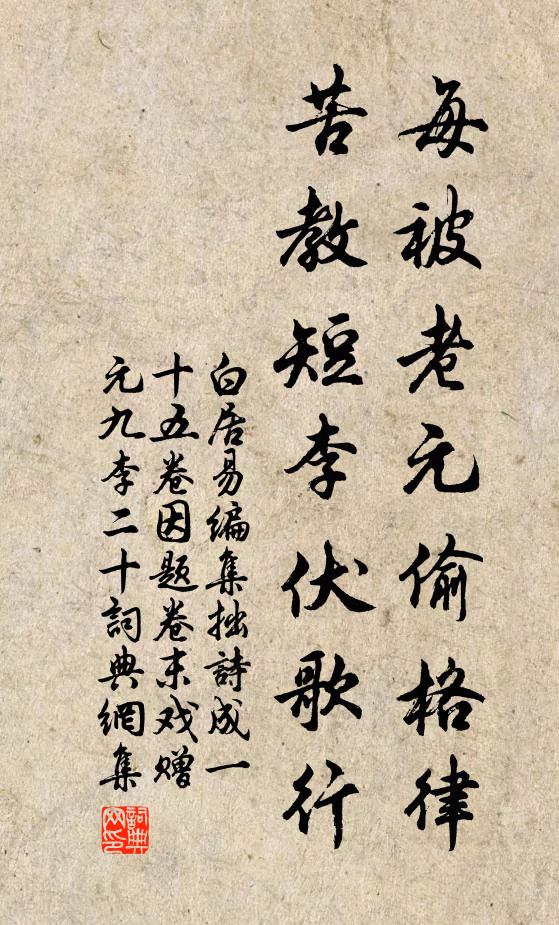 每被老元偷格律
苦教短李伏歌行
白居易编集拙詩成一
十五卷因题卷末戏赠
元九李二十詞典網集
詞典网印